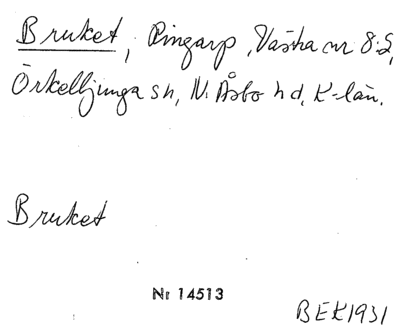 Bruket, Pingarp, Västra nr 8:2,
Örkelljunga sn, N. Åsbo hd, K-län.
Bruket
Nr 14513
BEK1931